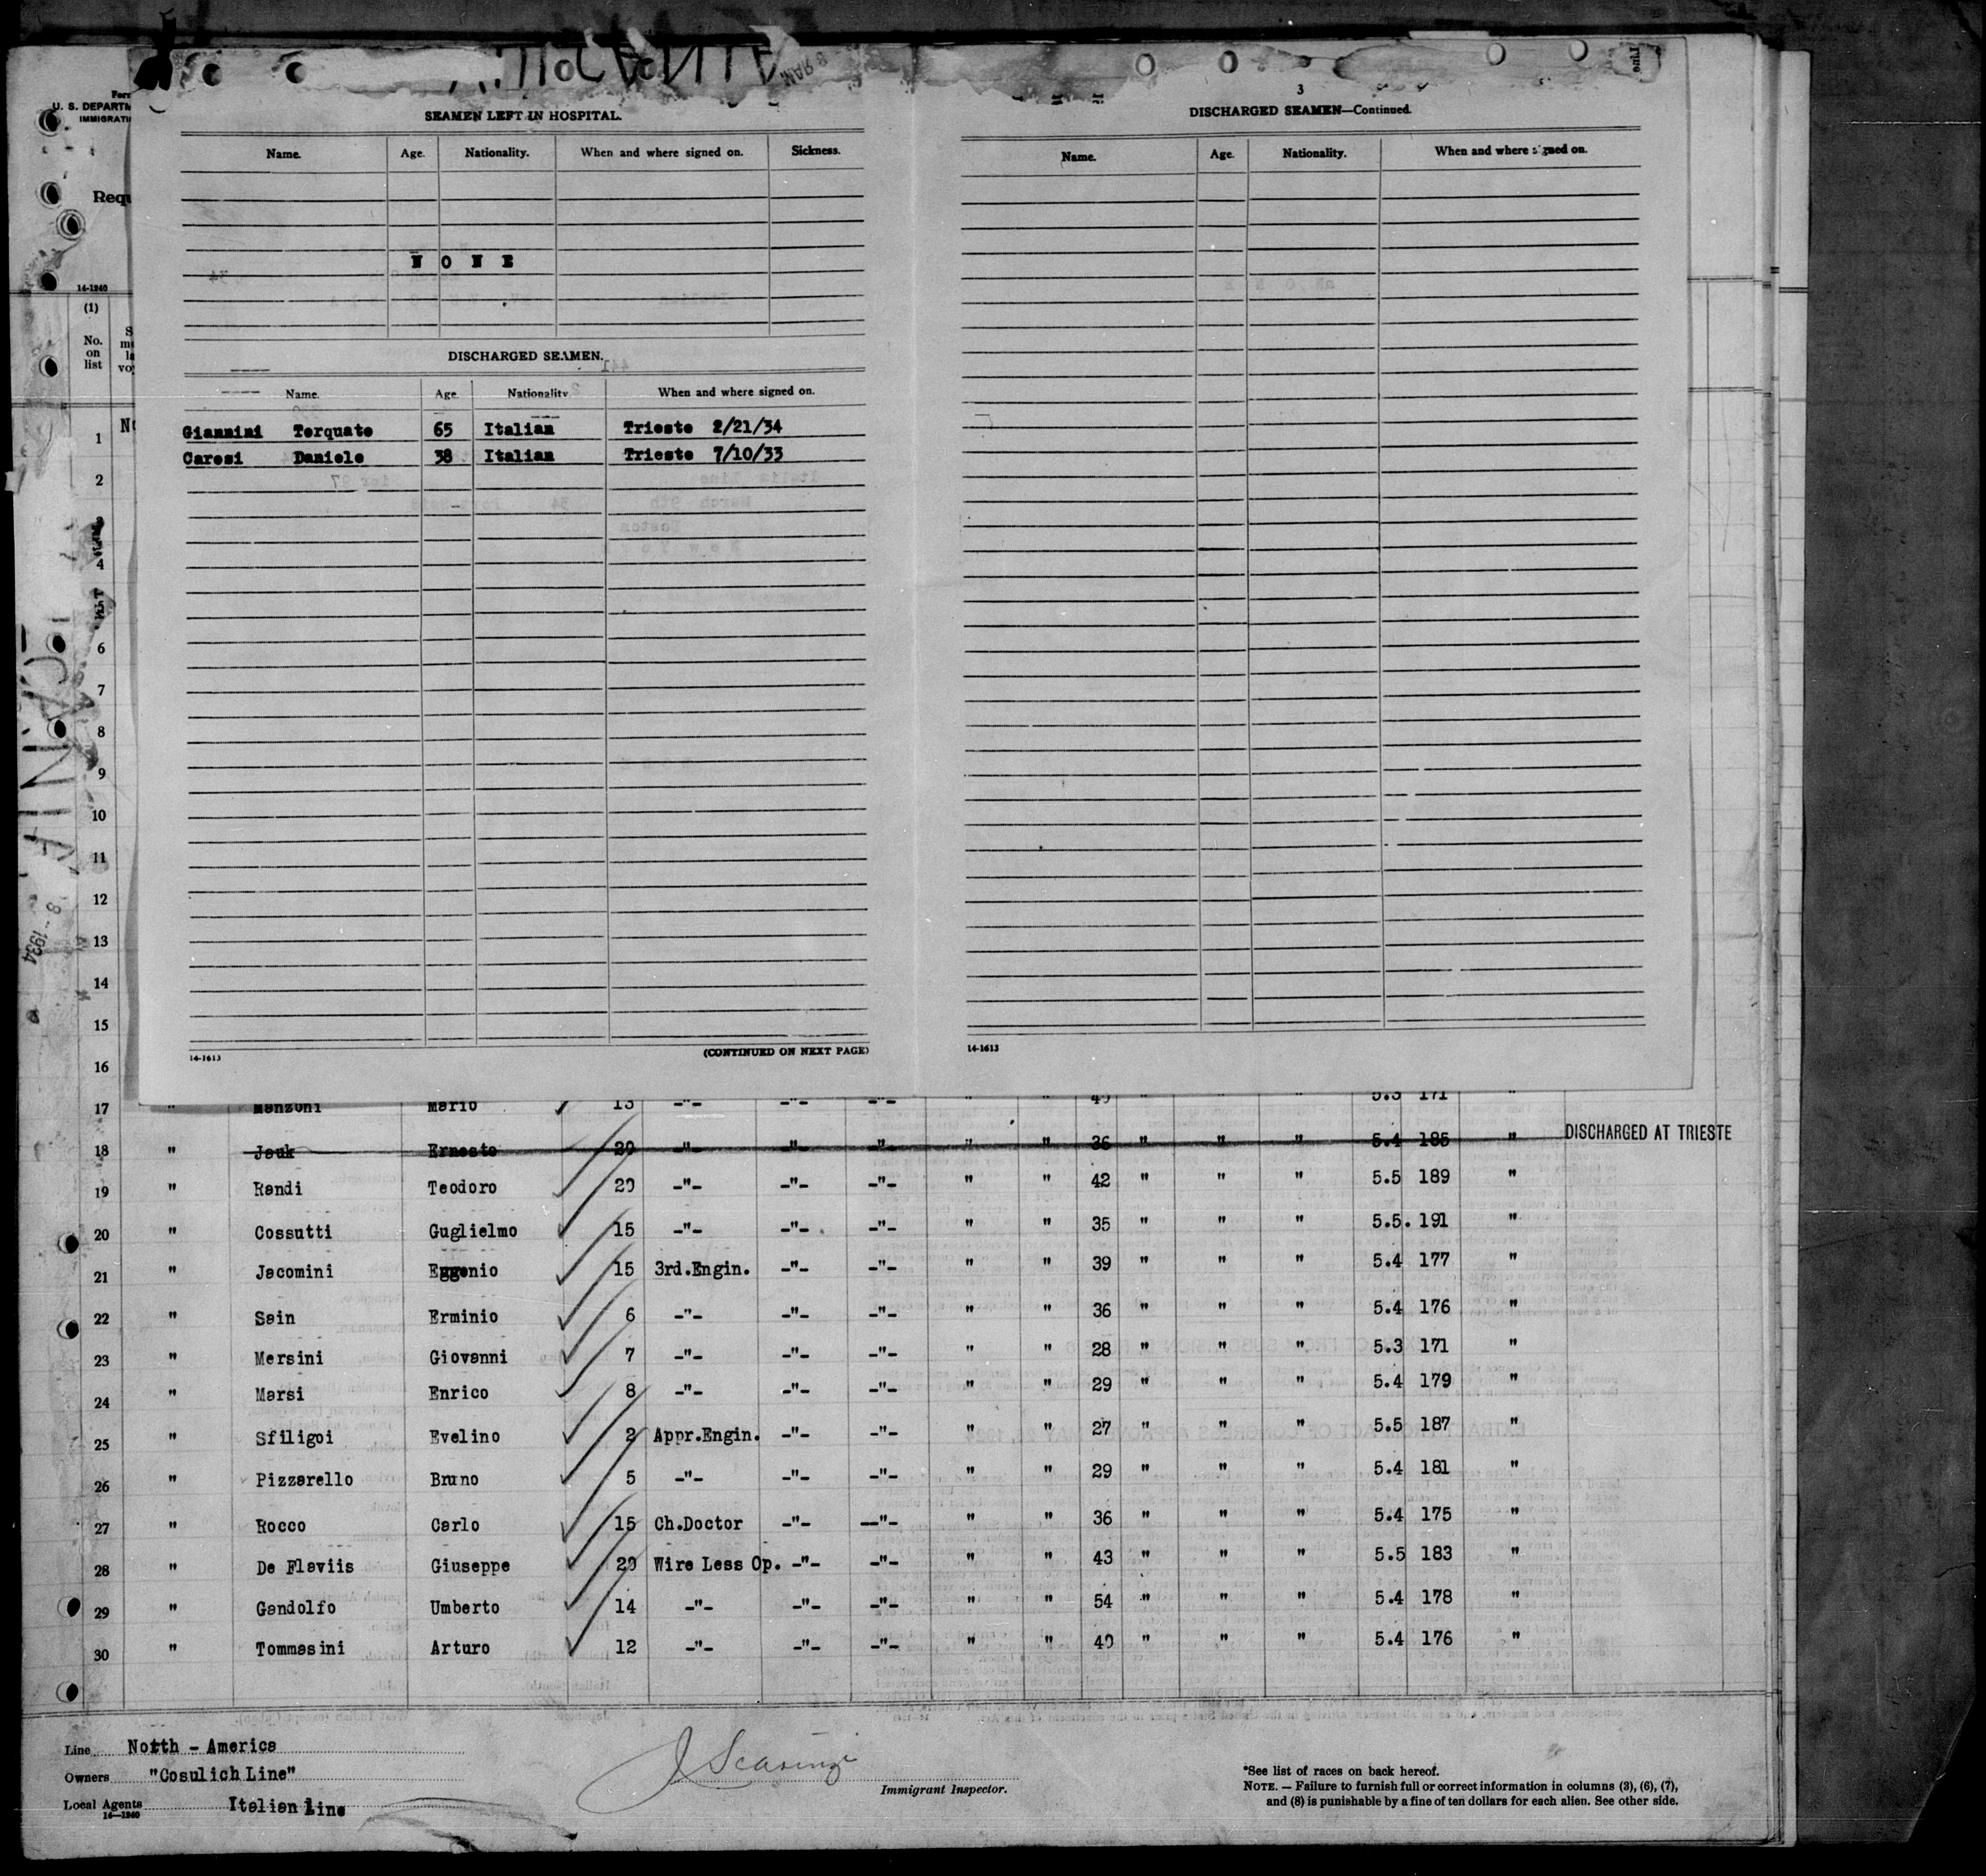 U. S. DEPARTM
IMMIGRATI
Requ
14-1240
(1)
No. on list
SEAMEN LEFT IN HOSPITAL.
Name. Age. Nationality. When and where signed on. Sickness.
N O N E
DISCHARGED SEAMEN.
Name. Age. Nationality. When and where signed on.
Giannini Torquato 65 Italian Trieste 2/21/34
Caresi Daniele 38 Italian Trieste 7/10/33
14-1613 (CONTINUED ON NEXT PAGE)
3
DISCHARGED SEAMEN—Continued.
Name. Age. Nationality. When and where signed on.
14-1613
1
2
4
6
7
8
9
10
11
12
13
14
15
16
17 " Manzoni Mario 13 -"- -"- -"- " " 40 " " " 5.3 171 "
18 " Jauk Ernesto 20 -"- -"- -"- " " 36 " " " 5.4 185 " DISCHARGED AT TRIESTE
19 " Randi Teodoro 20 -"- -"- -"- " " 42 " " " 5.5 189 "
20 " Cossutti Guglielmo 15 -"- -"- -"- " " 35 " " " 5.5. 191 "
21 " Jacomini Eggenio 15 3rd.Engin. -"- -"- " " 39 " " " 5.4 177 "
22 " Sain Erminio 6 -"- -"- -"- " " 36 " " " 5.4 176 "
23 " Mersini Giovanni 7 -"- -"- -"- " " 28 " " " 5.3 171 "
24 " Marsi Enrico 8 -"- -"- -"- " " 29 " " " 5.4 179 "
25 " Sfiligoi Evelino 2 Appr.Engin. -"- -"- " " 27 " " " 5.5 187 "
26 " Pizzarello Bruno 5 -"- -"- -"- " " 29 " " " 5.4 181 "
27 " Rocco Carlo 15 Ch.Doctor -"- --"- " " 36 " " " 5.4 175 "
28 " De Flaviis Giuseppe 20 Wire Less Op. -"- -"- " " 43 " " " 5.5 183 "
29 " Gandolfo Umberto 14 -"- -"- -"- " " 54 " " " 5.4 178 "
30 " Tommasini Arturo 12 -"- -"- -"- " " 40 " " " 5.4 176 "
Line North - America
Owners "Cosulich Line"
Local Agents Italian Line
14-1240
Immigrant Inspector.
*See list of races on back hereof.
NOTE. — Failure to furnish full or correct information in columns (3), (6), (7),
and (8) is punishable by a fine of ten dollars for each alien. See other side.